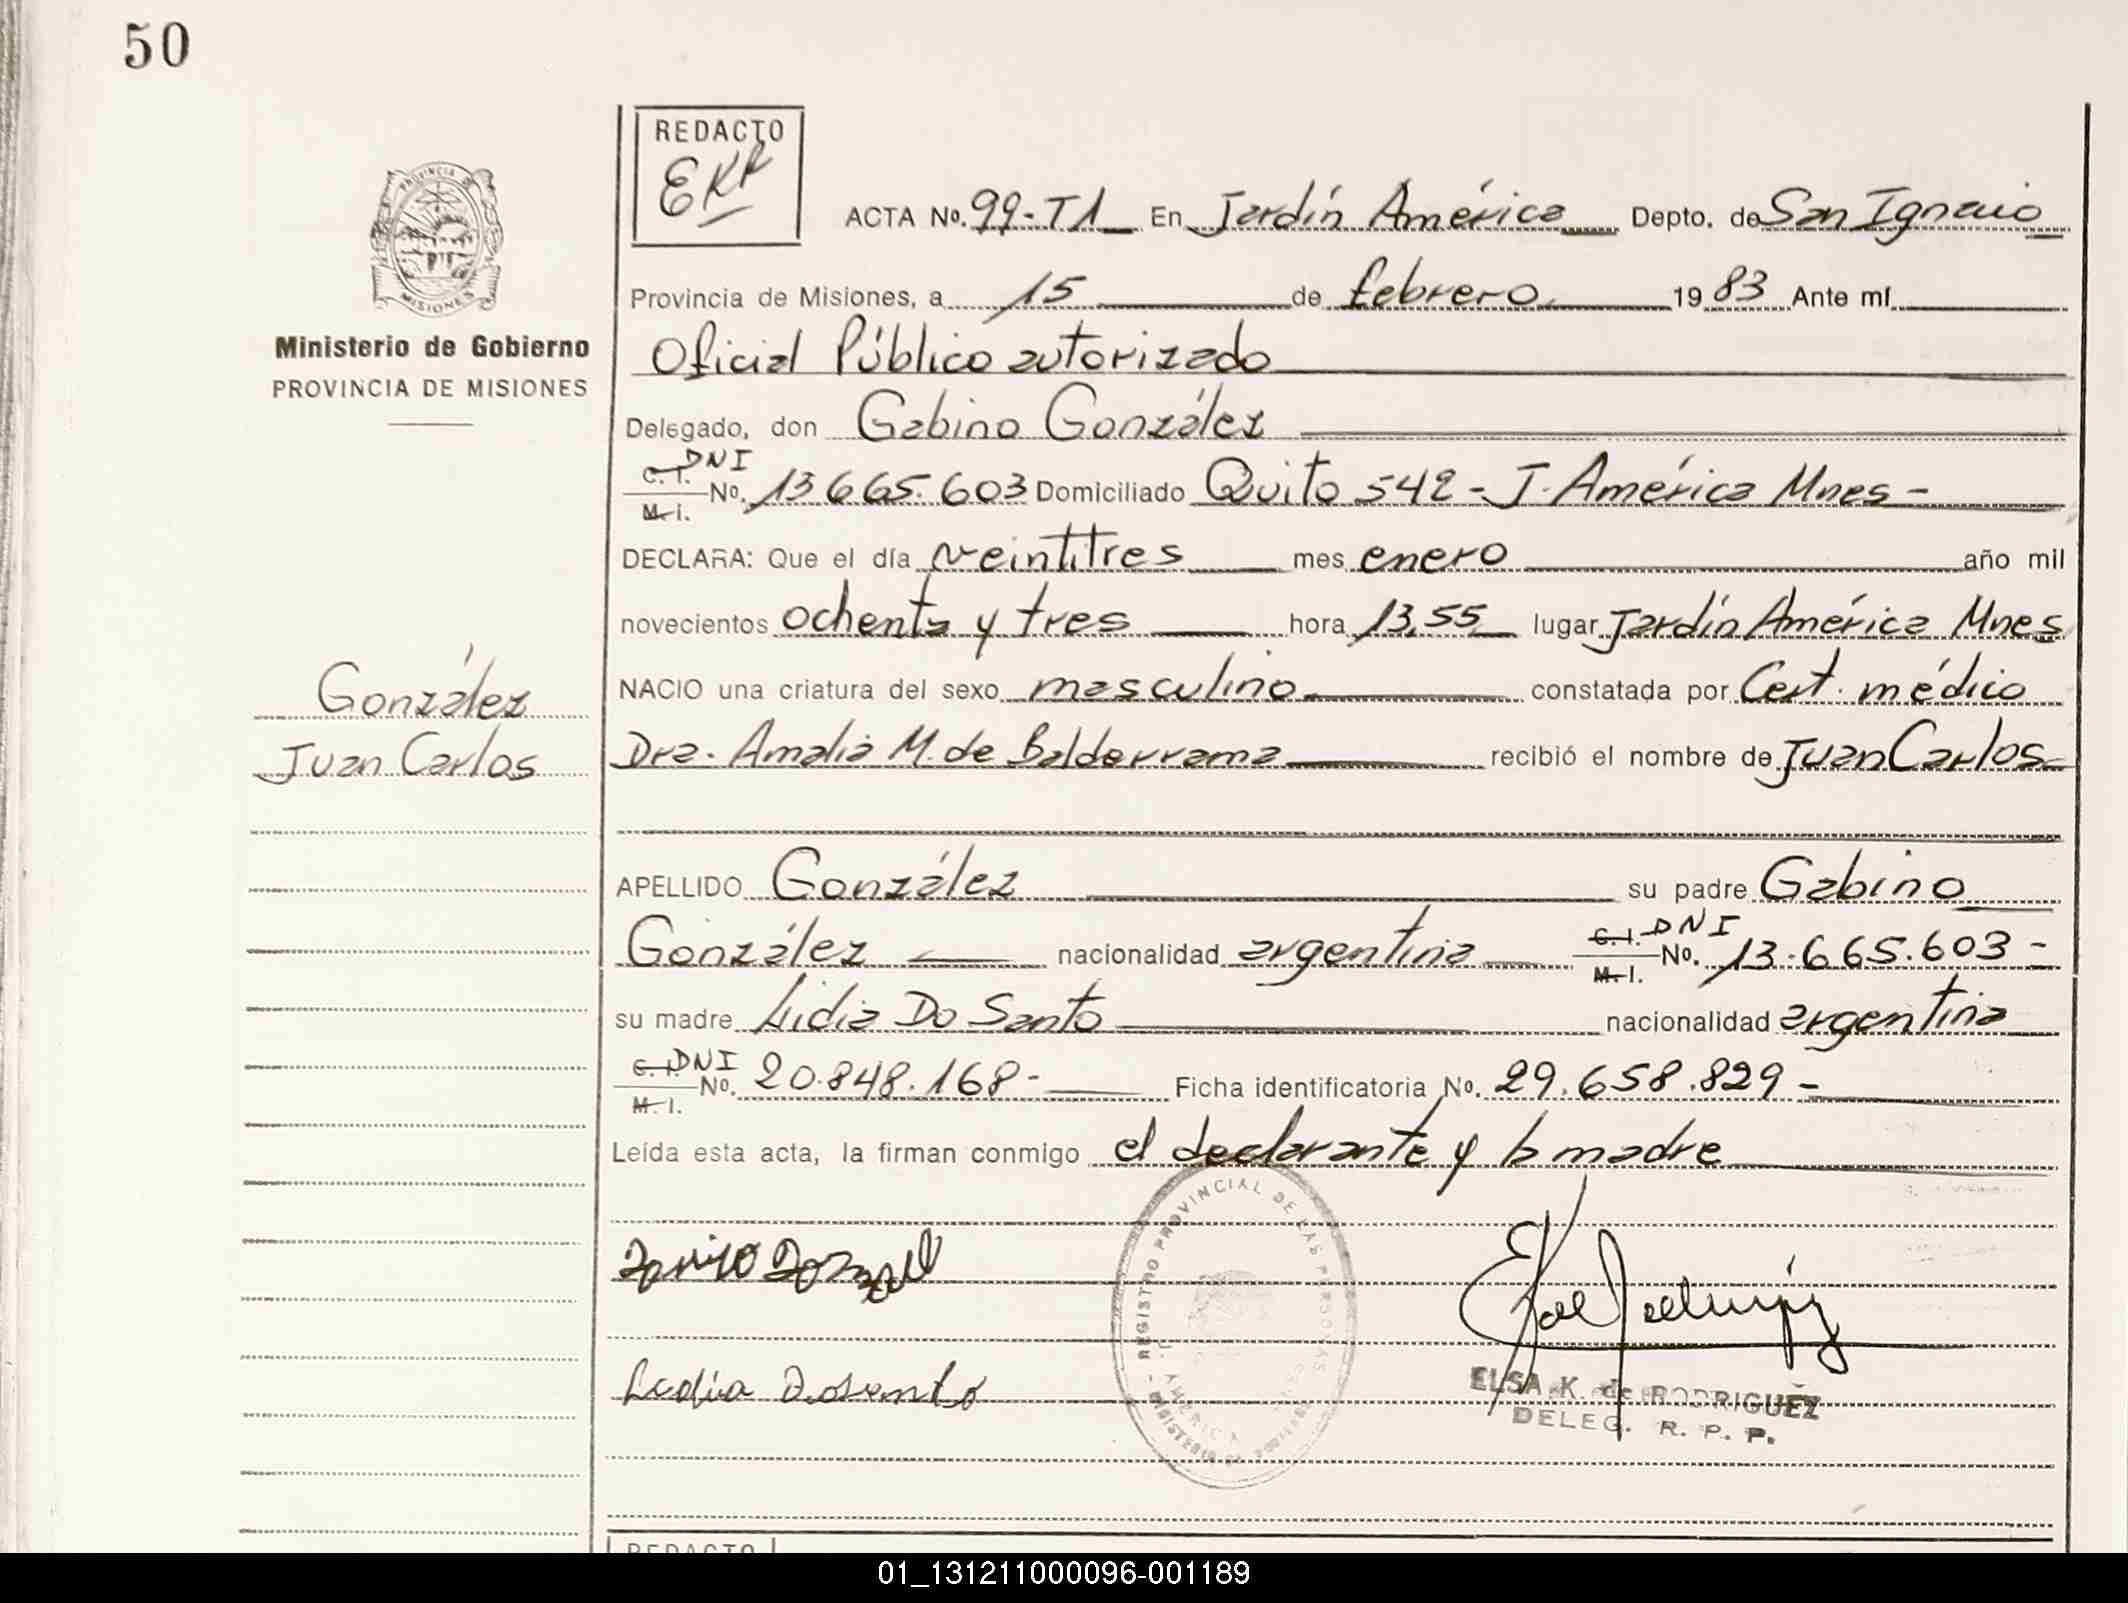 50
REDACTO
EKR
PROVINCIA DE
MISIONES
Ministerio de Gobierno
PROVINCIA DE MISIONES
González
Juan Carlos
ACTA No. 99-T1 En Jardín América Depto. de San Ignacio
Provincia de Misiones, a 15 de febrero 1983 Ante mí
Oficial Público autorizado
Delegado, don Gabino González
C.I. DNI M.I. No. 13.665.603 Domiciliado Quito 542 - J. América Mnes -
DECLARA: Que el día veintitres mes enero año mil
novecientos ochenta y tres hora 13,55 lugar Jardín América Mnes
NACIO una criatura del sexo masculino constatada por Cert. médico
Dra. Amalia M. de Balderrama recibió el nombre de Juan Carlos
APELLIDO González su padre Gabino
González nacionalidad argentina C.I. DNI M.I. No. 13.665.603 -
su madre Lidia Do Santo nacionalidad argentina
C.I. DNI M.I. No. 20.848.168 - Ficha identificatoria No. 29.658.829 -
Leída esta acta, la firman conmigo el declarante y la madre
REGISTRO PROVINCIAL DE LAS PERSONAS
MINISTERIO DE GOBIERNO
J. AMERICA
Lidia Dosanto
ELSA K. de RODRIGUEZ
DELEG. R. P. P.
REDACTO
01_131211000096-001189